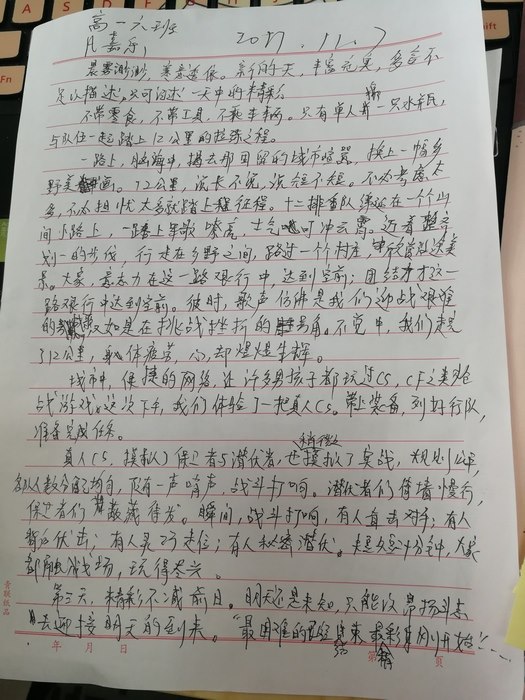 高一六班
2017.11.7
晨雾渺渺，寒意逼依。前行的天，丰富完美，多言不
足以描述，只可阔述一天中的精彩
不带零食，不带工具，不乘车辆。只有单人 一只水瓶，
与队伍一起踏上12公里的拉练之程。
一路上，脑海中，抛去那回留的城市喧嚣，换上一幅乡
野美画。12公里，说长不长，说短不短。不必考虑太
多，不必担忧太多就踏上征程。十二排队伍绵延在一个山
间小路上，一路上军歌嘹亮，士气 可冲云霄。迈着整齐
划一的步伐，行走在乡野之间，路过一个村庄，中欣 这美
景。大家，意志力在这一路艰行中，达到空前；团结才在这一
路艰行中达到空前。彼时，歌声仿佛是我们迎战艰难
的 又如是在挑战挫折的号角。不觉中，我们走完
了12公里，身体疲劳，心却熠熠生辉。
城市中，便捷的网络，让许多男孩子都玩过CS，CF之类枪
战游戏。这次下午，我们体验了一把真人CS。带上装备，列好行队，
准备完成任务。
真人CS，模拟保卫者与潜伏者，也稍微模拟了实战，规则公平，
各队人数分配均匀，只有一声哨声，战斗打响。潜伏者们借墙慢行，
保卫者们 藏待发。瞬间，战斗打响，有人直击对手；有人
背后伏击；有人灵巧走位；有人秘密潜伏。短短 十分钟，大家
都 战场，玩得尽兴。
第二天，精彩不减前日。明天还是未知，只能以昂扬斗志
去迎接明天的到来。“最困难的 结束 精彩 刚刚开始”……
青联纸品
年 月 日
第 页